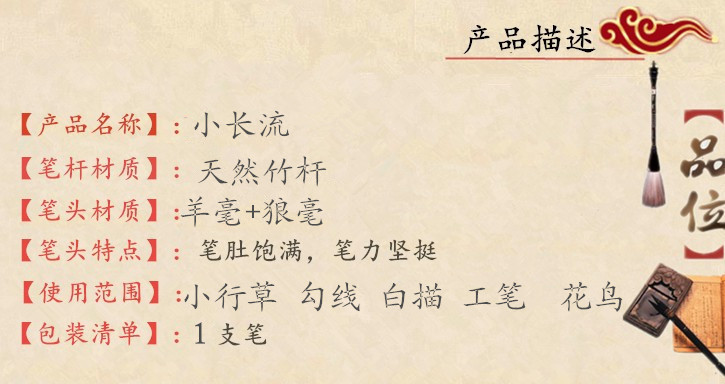 产品描述
【产品名称】：小长流
【笔杆材质】：天然竹杆
【笔头材质】:羊毫+狼毫
【笔头特点】：笔肚饱满，笔力坚挺
【使用范围】:小行草 勾线 白描 工笔 花鸟
【包装清单】：1支笔
【品位】